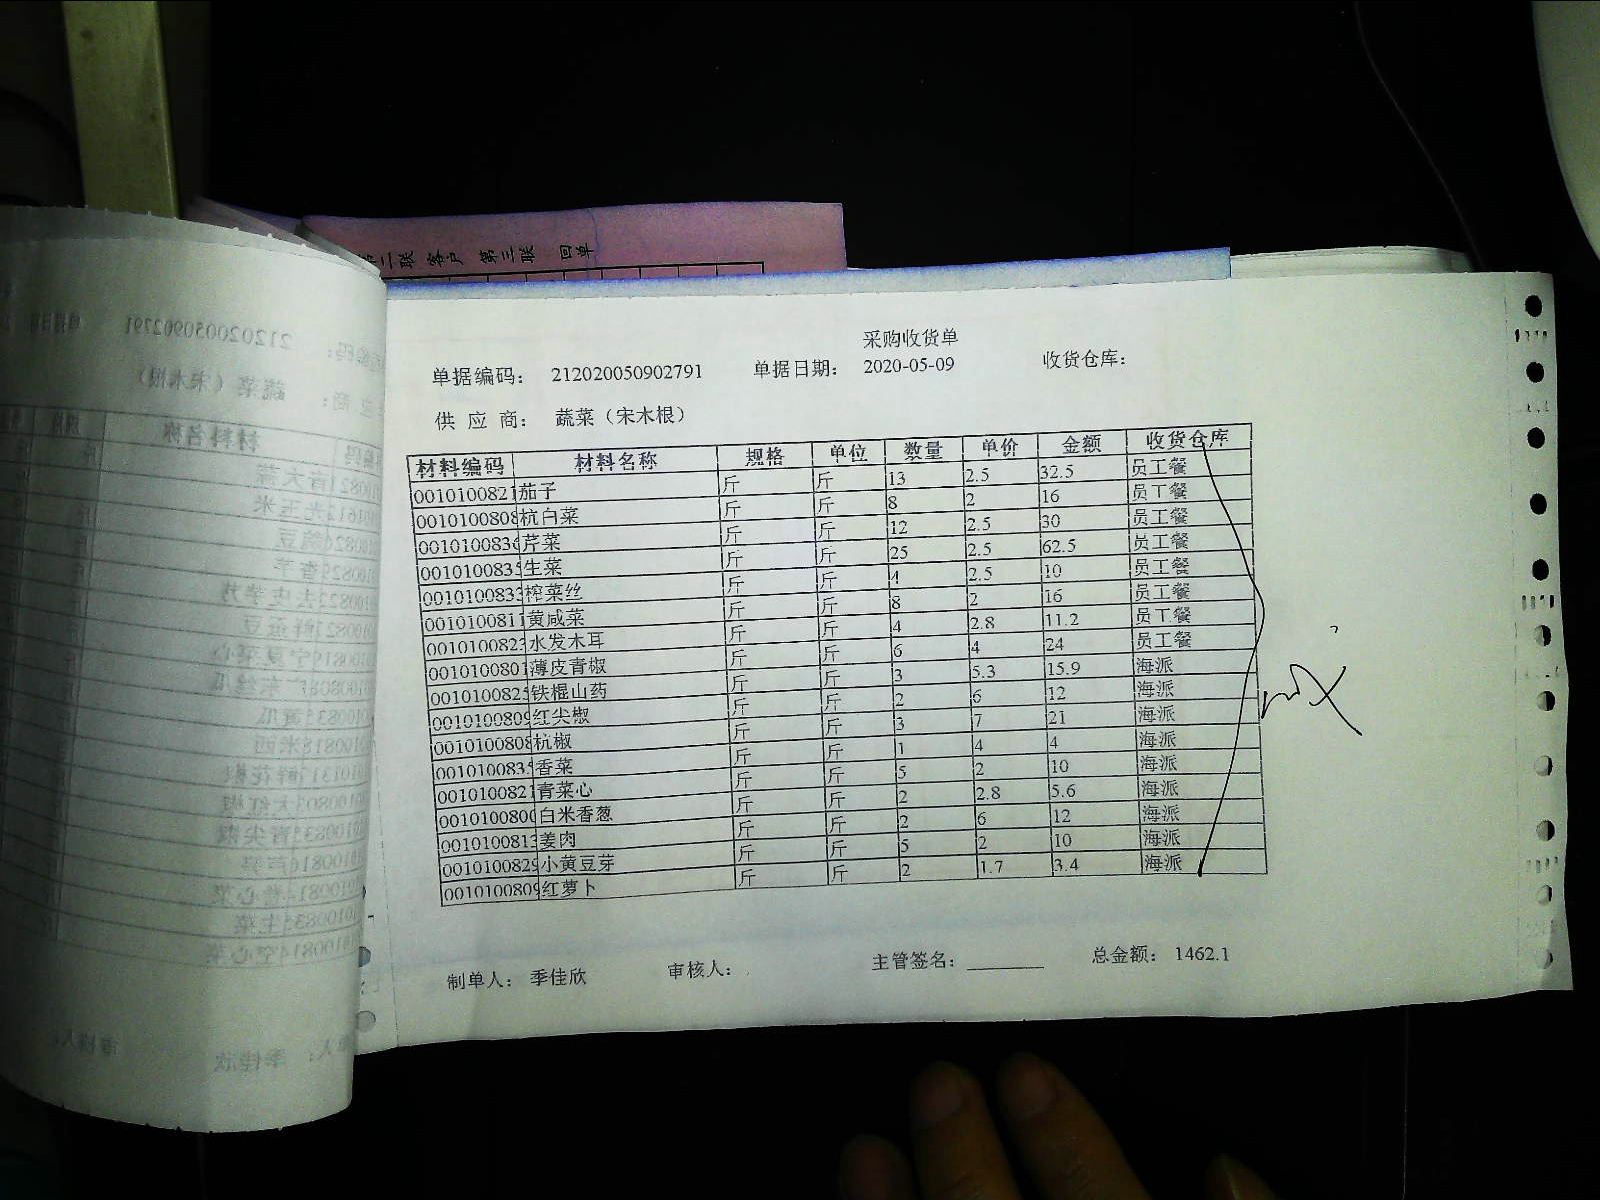 第二联 客户 第三联 回单
采购收货单
单据编码： 212020050902791 单据日期： 2020-05-09 收货仓库：
供 应 商： 蔬菜（宋木根）
材料编码 材料名称 规格 单位 数量 单价 金额 收货仓库
0010100821 茄子 斤 斤 13 2.5 32.5 员工餐
0010100808 杭白菜 斤 斤 8 2 16 员工餐
001010083 芹菜 斤 斤 12 2.5 30 员工餐
001010083 生菜 斤 斤 25 2.5 62.5 员工餐
001010083 榨菜丝 斤 斤 4 2.5 10 员工餐
0010100811 黄咸菜 斤 斤 8 2 16 员工餐
001010082 水发木耳 斤 斤 4 2.8 11.2 员工餐
0010100801 薄皮青椒 斤 斤 6 4 24 员工餐
001010082 铁棍山药 斤 斤 3 5.3 15.9 海派
0010100809 红尖椒 斤 斤 2 6 12 海派
0010100808 杭椒 斤 斤 3 7 21 海派
001010083 香菜 斤 斤 1 4 4 海派
0010100821 青菜心 斤 斤 5 2 10 海派
001010080 白米香葱 斤 斤 2 2.8 5.6 海派
001010081 姜肉 斤 斤 2 6 12 海派
0010100829 小黄豆芽 斤 斤 5 2 10 海派
0010100809 红萝卜 斤 斤 2 1.7 3.4 海派
制单人： 季佳欣 审核人： 主管签名： 总金额： 1462.1